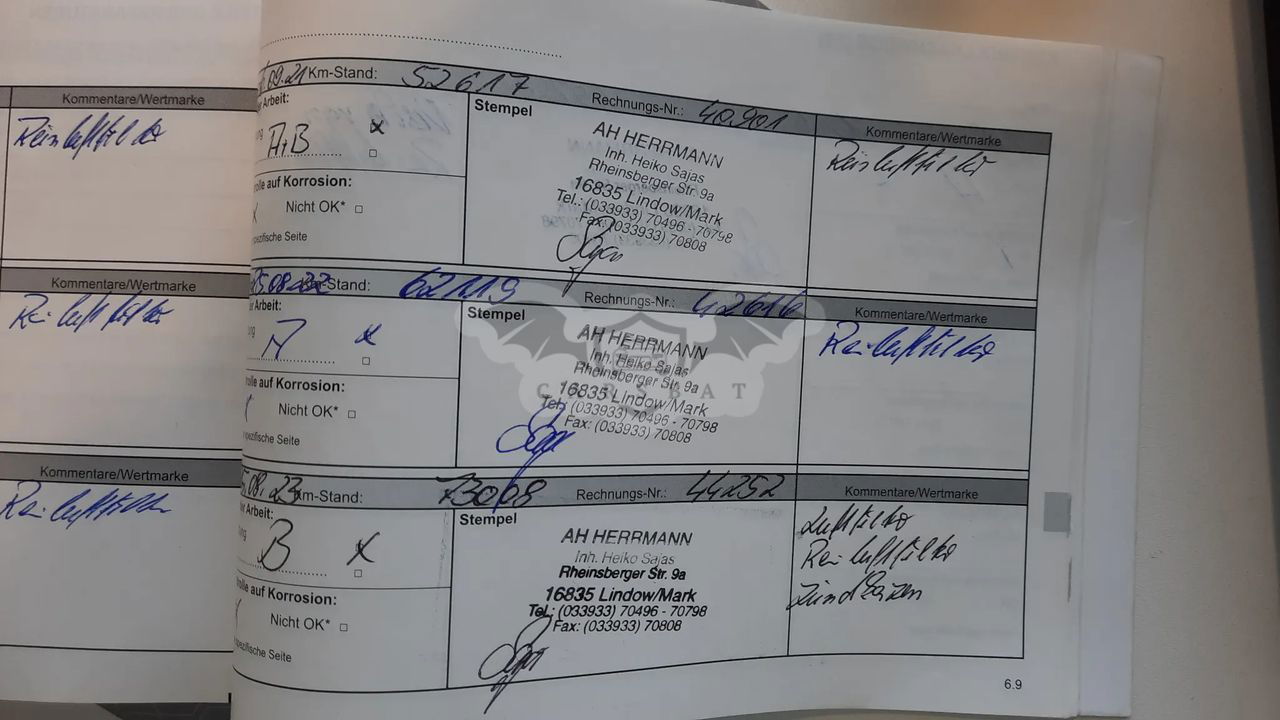 Kommentare/Wertmarke
Reinluftfilter
Kommentare/Wertmarke
Reinluftfilter
Kommentare/Wertmarke
Reinluftfilter
09.21 Km-Stand: 52617 Rechnungs-Nr.: 40.901
er Arbeit:
A+B x
rolle auf Korrosion:
Nicht OK*
spezifische Seite
Stempel
AH HERRMANN
Inh. Heiko Sajas
Rheinsberger Str. 9a
16835 Lindow/Mark
Tel.: (033933) 70496 - 70798
Fax: (033933) 70808
Kommentare/Wertmarke
Reinluftfilter
08.22 Km-Stand: 62119 Rechnungs-Nr.: 42616
er Arbeit:
A x
rolle auf Korrosion:
Nicht OK*
spezifische Seite
Stempel
AH HERRMANN
Inh. Heiko Sajas
Rheinsberger Str. 9a
16835 Lindow/Mark
Tel.: (033933) 70496 - 70798
Fax: (033933) 70808
CARSBAT
Kommentare/Wertmarke
Reinluftfilter
08.23 Km-Stand: 73008 Rechnungs-Nr.: 44252
er Arbeit:
B x
rolle auf Korrosion:
Nicht OK*
spezifische Seite
Stempel
AH HERRMANN
Inh. Heiko Sajas
Rheinsberger Str. 9a
16835 Lindow/Mark
Tel.: (033933) 70496 - 70798
Fax: (033933) 70808
Kommentare/Wertmarke
Luftfilter
Reinluftfilter
Zündkerzen
6.9